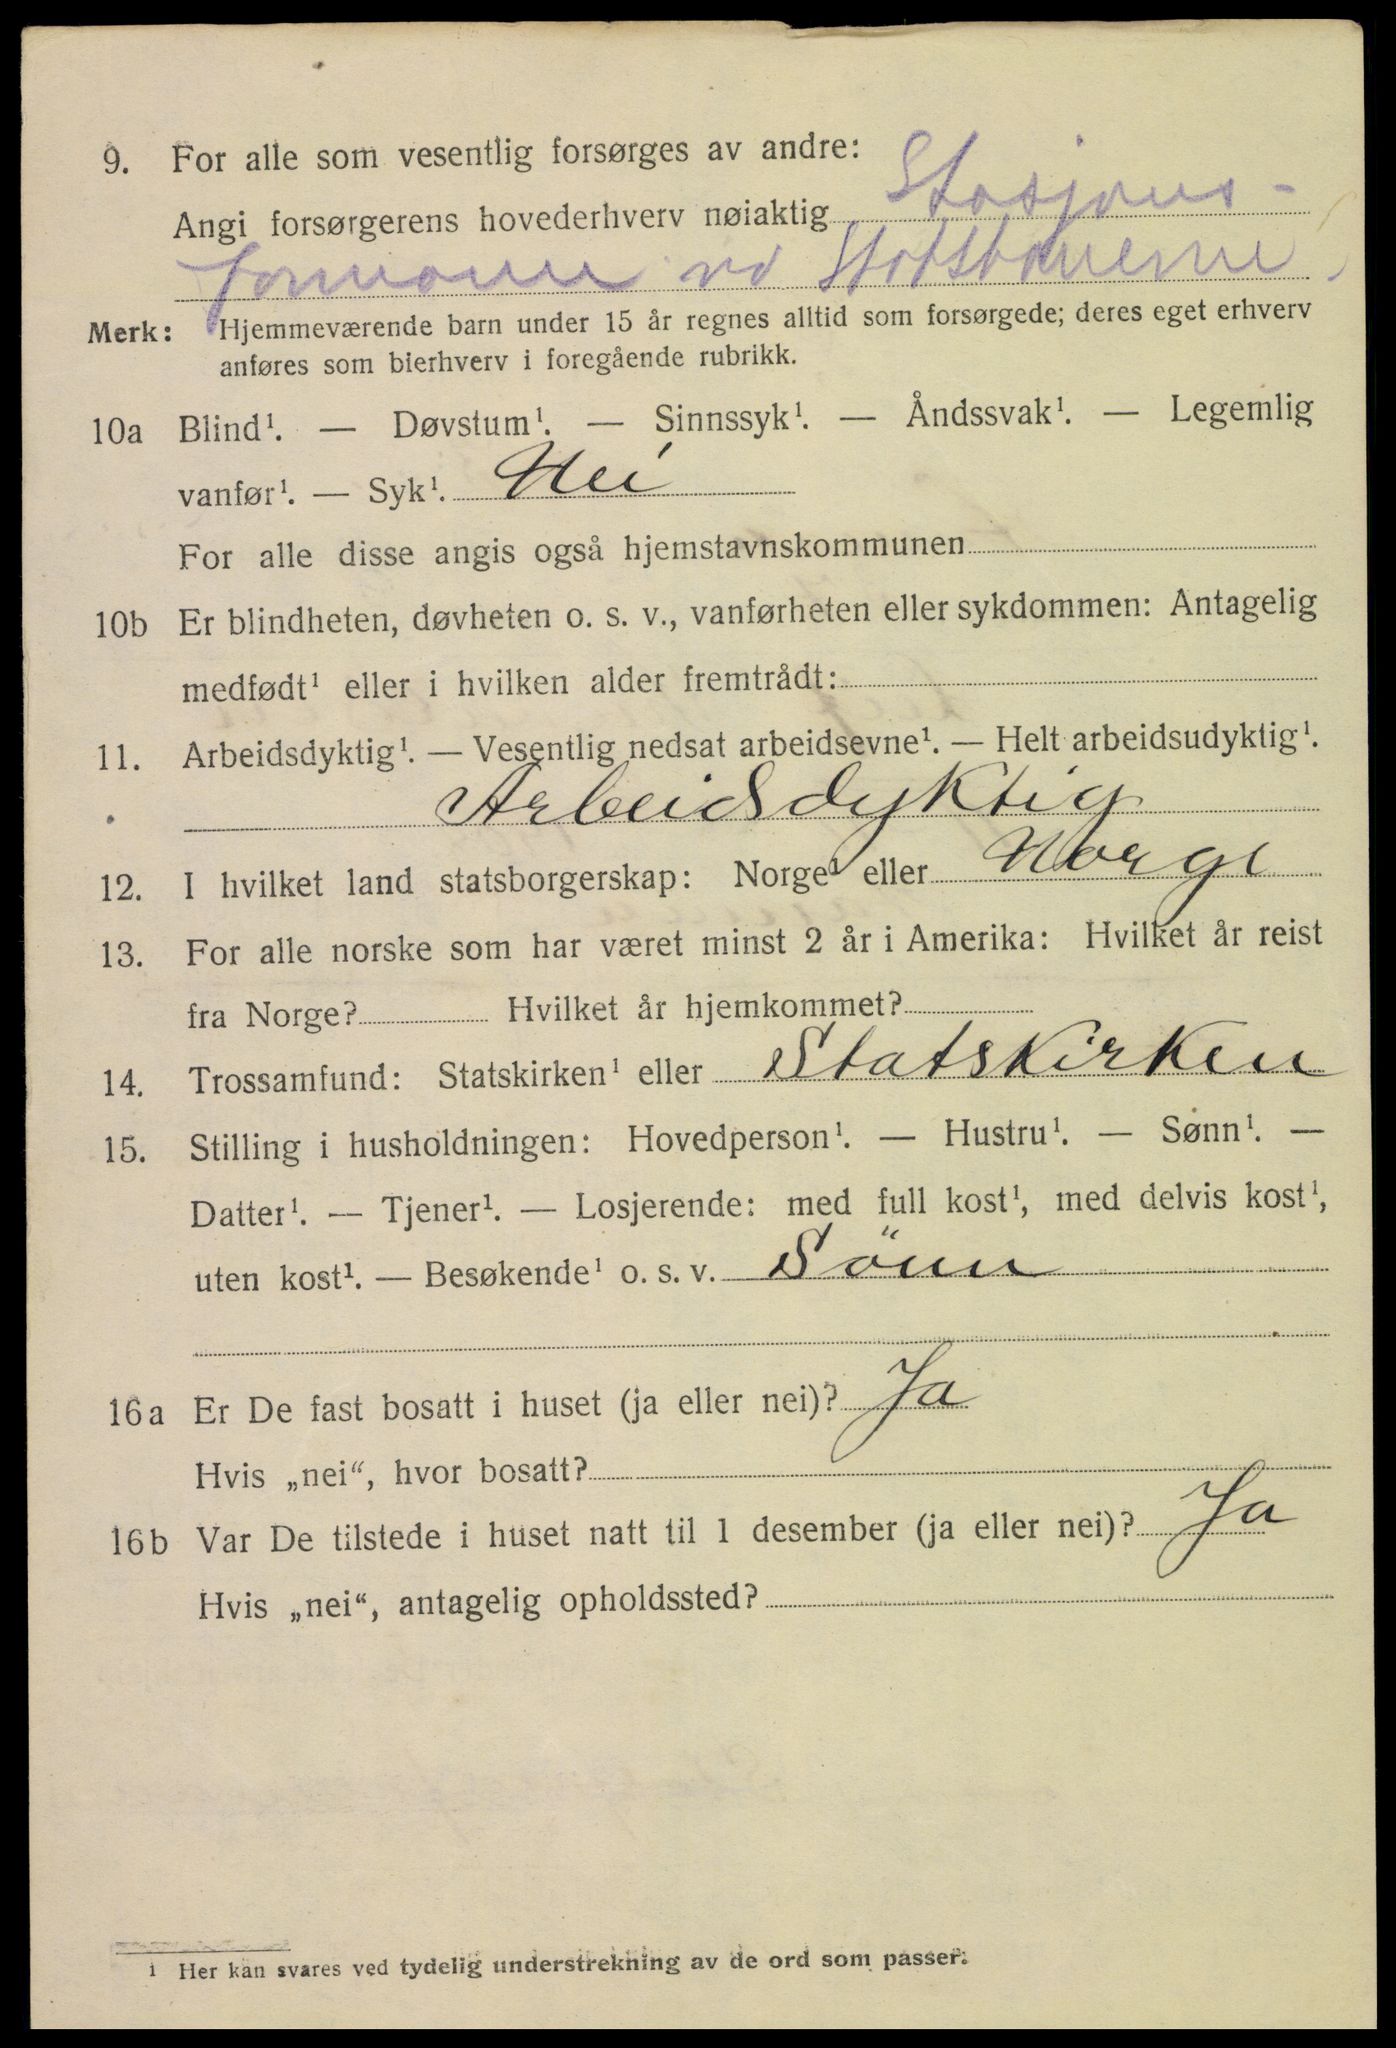 9. For alle som vesentlig forsørges av andre:
Angi forsørgerens hovederhverv nøiaktig Stasjons-
formann vd Statsbanerne.
Merk: Hjemmeværende barn under 15 år regnes alltid som forsørgede; deres eget erhverv
anføres som bierhverv i foregående rubrikk.
10a Blind¹. — Døvstum¹. — Sinnssyk¹. — Åndssvak¹. — Legemlig
vanfør¹. — Syk¹. Nei
For alle disse angis også hjemstavnskommunen
10b Er blindheten, døvheten o. s. v., vanførheten eller sykdommen: Antagelig
medfødt¹ eller i hvilken alder fremtrådt:
11. Arbeidsdyktig¹. — Vesentlig nedsat arbeidsevne¹. — Helt arbeidsudyktig¹.
Arbeidsdyktig
12. I hvilket land statsborgerskap: Norge¹ eller Norge
13. For alle norske som har været minst 2 år i Amerika: Hvilket år reist
fra Norge? Hvilket år hjemkommet?
14. Trossamfund: Statskirken¹ eller Statskirken
15. Stilling i husholdningen: Hovedperson¹. — Hustru¹. — Sønn¹. —
Datter¹. — Tjener¹. — Losjerende: med full kost¹, med delvis kost¹,
uten kost¹. — Besøkende¹ o. s. v. Sönn
16a Er De fast bosatt i huset (ja eller nei)? Ja
Hvis „nei“, hvor bosatt?
16b Var De tilstede i huset natt til 1 desember (ja eller nei)? Ja
Hvis „nei“, antagelig opholdssted?
1 Her kan svares ved tydelig understrekning av de ord som passer.